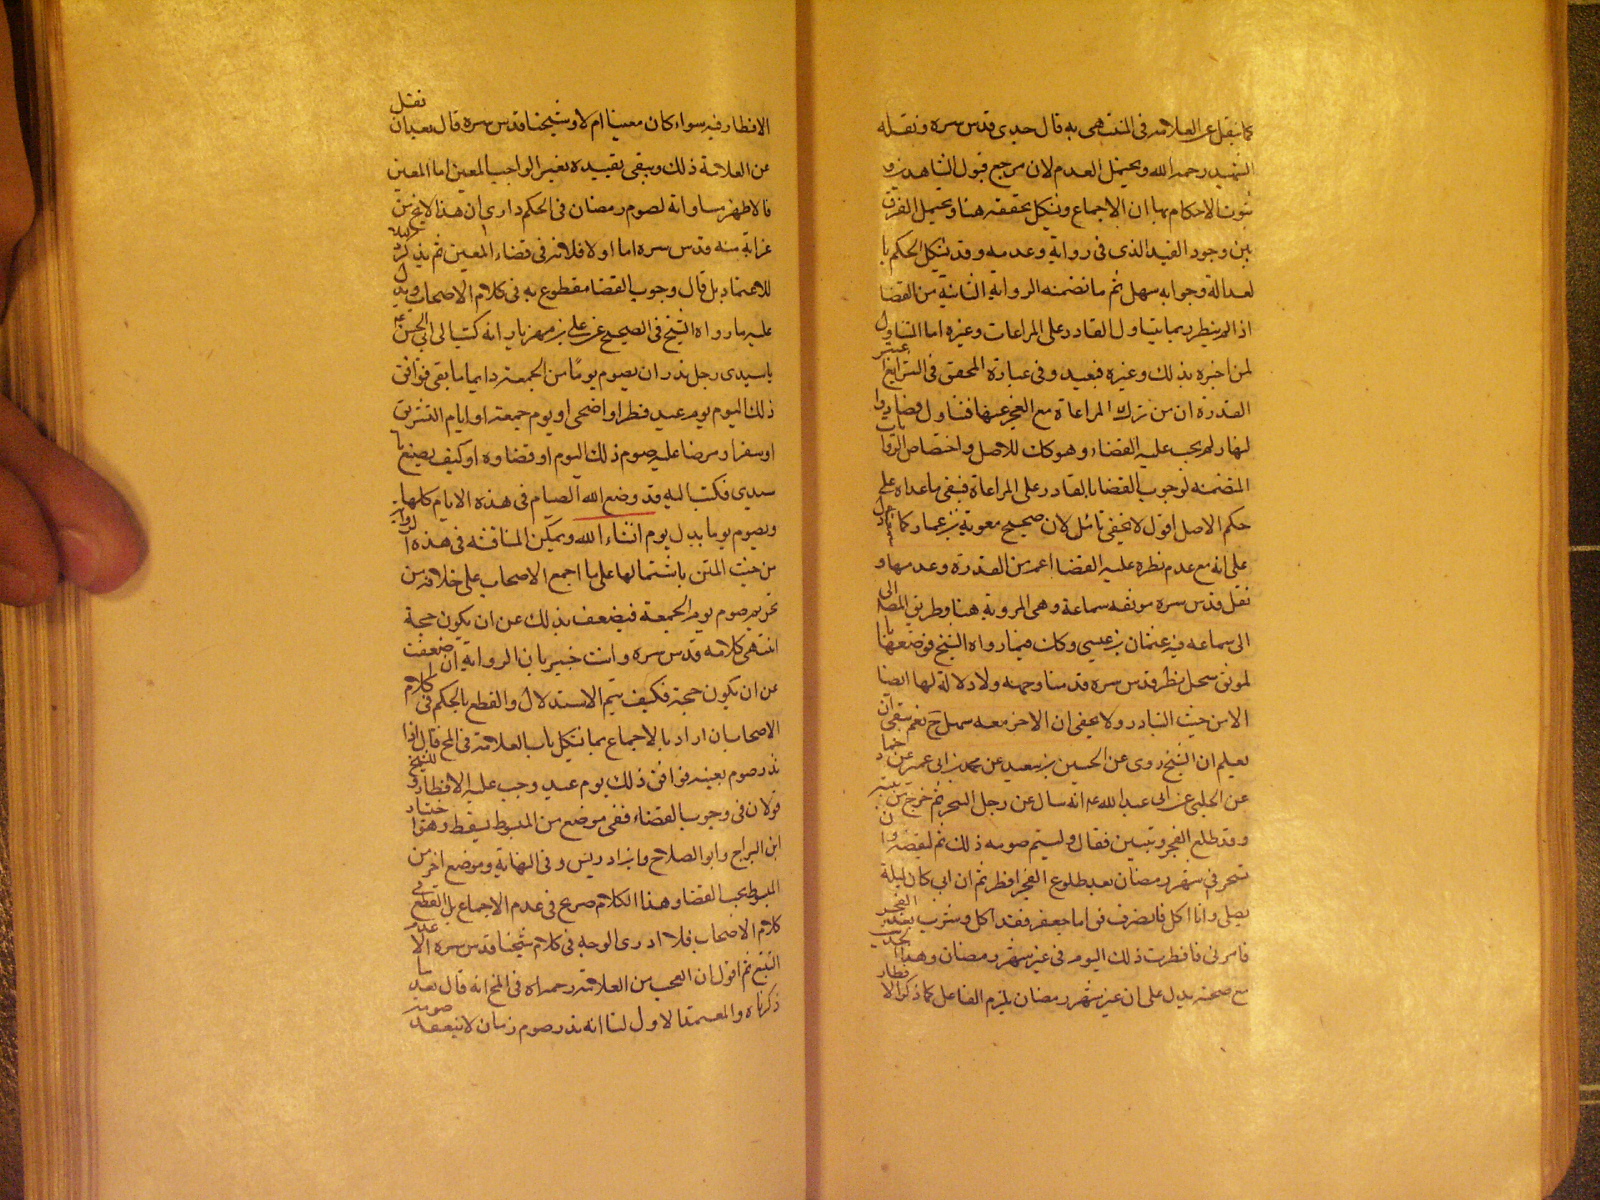 كما ينقل عن العلامة في المنتهى به قال جدي قدس سره ونقله
الشهيد رحمه الله ويحتمل العدم لان مرجع قبول الشاهدين
ثبوت الاحكام بها ان الاجماع ويشكل بتحققه هنا ويحتمل الفرق
بين وجود القيد الذي في رواية وعدمه وقد يشكل الحكم با
لعدالة وجوابه سهل ثم ما تضمنه الرواية الثانية من القضا
اذا لم ينظر ربما يتناول القادر على المراعات وغيره اما التناول
لمن اخبره بذلك وغيره فبعيد وفي عبارة المحقق في الشرايع اعتبر
القدرة ان من ترك المراعاة مع العجز عنها فتناول فصادف
نهار لم يجب عليه القضاء وهو كك للاصل واختصاص الروايات
المتضمنه لوجوب القضا بالقادر على المراعاة فيبقى ما عداه على
حكم الاصل اقول لا يخفى تأمل لان صحيح معوية بن عمار كما يدل
على انه مع عدم نظره عليه القضا اعم من القدرة وعدمها و
نقل قدس سره موثقه سماعة وهي المروية هنا وطريق المص الى
الى سماعه فيه عثمان بن عيسى وكك فيما رواه الشيخ فوصفها با
لموثق محل نظر قدس سره قدمنا وجهه ولا دلالة لها ايضا
الا من حيث التبادر ولا يخفى ان الاخر معه سهل ح نعم ينبغي ان
يعلم ان الشيخ روى عن الحسين بن سعيد عن محمد بن ابي عمير عن حماد
عن الحلبي عن ابي عبد الله ع انه سال عن رجل تسحر ثم خرج من بيته
وقد طلع الفجر وتبين فقال وليتم صومه ذلك ثم ليقضه وان
تسحر في شهر رمضان بعد طلوع الفجر افطر ثم ان ابي كان ليلة
يصلي وانا اكل فانصرف فق اما جعفر فقد اكل وشرب بعد الفجر
فامرني فافطرت ذلك اليوم في غير شهر رمضان وهذا الحديث
مع صحته يدل على ان غير شهر رمضان يلزم الفاعل كما ذكر الافطار
الافطار فيه سواء كان معينا ام لا وشيخنا قدس سره قال بعد ان نقل
عن العلامة ذلك وينبغي تقييده بغير الواجب المعين اما المعين
فالاظهر مساواته لصوم رمضان في الحكم دارى ان هذا لا يخ من
غرابة منه قدس سره اما اولا فلانه في قضاء المعين ثم يذكر
للاعتماد بل قال وجوب القضا مقطوع به في كلام الاصحاب ويدل
عليه ما رواه الشيخ في الصحيح عن علي بن مهزيار انه كتب الى ابي الحسن ع
يا سيدي رجل نذر ان يصوم يوما من الجمعة دايما ما بقي فوافق
ذلك اليوم يوم عيد فطر او اضحى او يوم جمعة او ايام التشريق
او سفر او مرض عليه صوم ذلك اليوم او قضاوه او كيف يصنع يا
سيدي فكتب اليه قد وضع الله الصيام في هذه الايام كلها
ويصوم يوما بدل يوم انشاء الله ويمكن المناقشه في هذه الرواية
من حيث المتن باشتمالها على ما اجمع الاصحاب على خلافه من
تحريم صوم يوم الجمعة فيضعف بذلك عن ان يكون حجة
انتهى كلامه قدس سره وانت خبير بان الرواية ان ضعفت
عن ان يكون حجة فكيف يتم الاستدلال والقطع بالحكم في كلام
الاصحاب ان اراد به الاجماع بما يشكل باب العلامة في المخ قال اذا
نذر صوم بعينه فوافق ذلك يوم عيد وجب عليه الافطار وللشيخ
قولان في وجوب القضاء ففي موضع من المبسوط يسقط وهو اختيار
ابن البراج وابو الصلاح وابن ادريس وفي النهاية وموضع اخر من
المبسوط يجب القضا وهذا الكلام صريح في عدم الاجماع بل القطع في
كلام الاصحاب فلا ادرى الوجه في كلام شيخنا قدس سره الا عدم
التتبع ثم اقول ان العجب من العلامة رحمه الله في المخ انه قال بعد ما
ذكرناه والمعتمد الاول لنا انه نذر صوم زمان لا ينعقد صومه